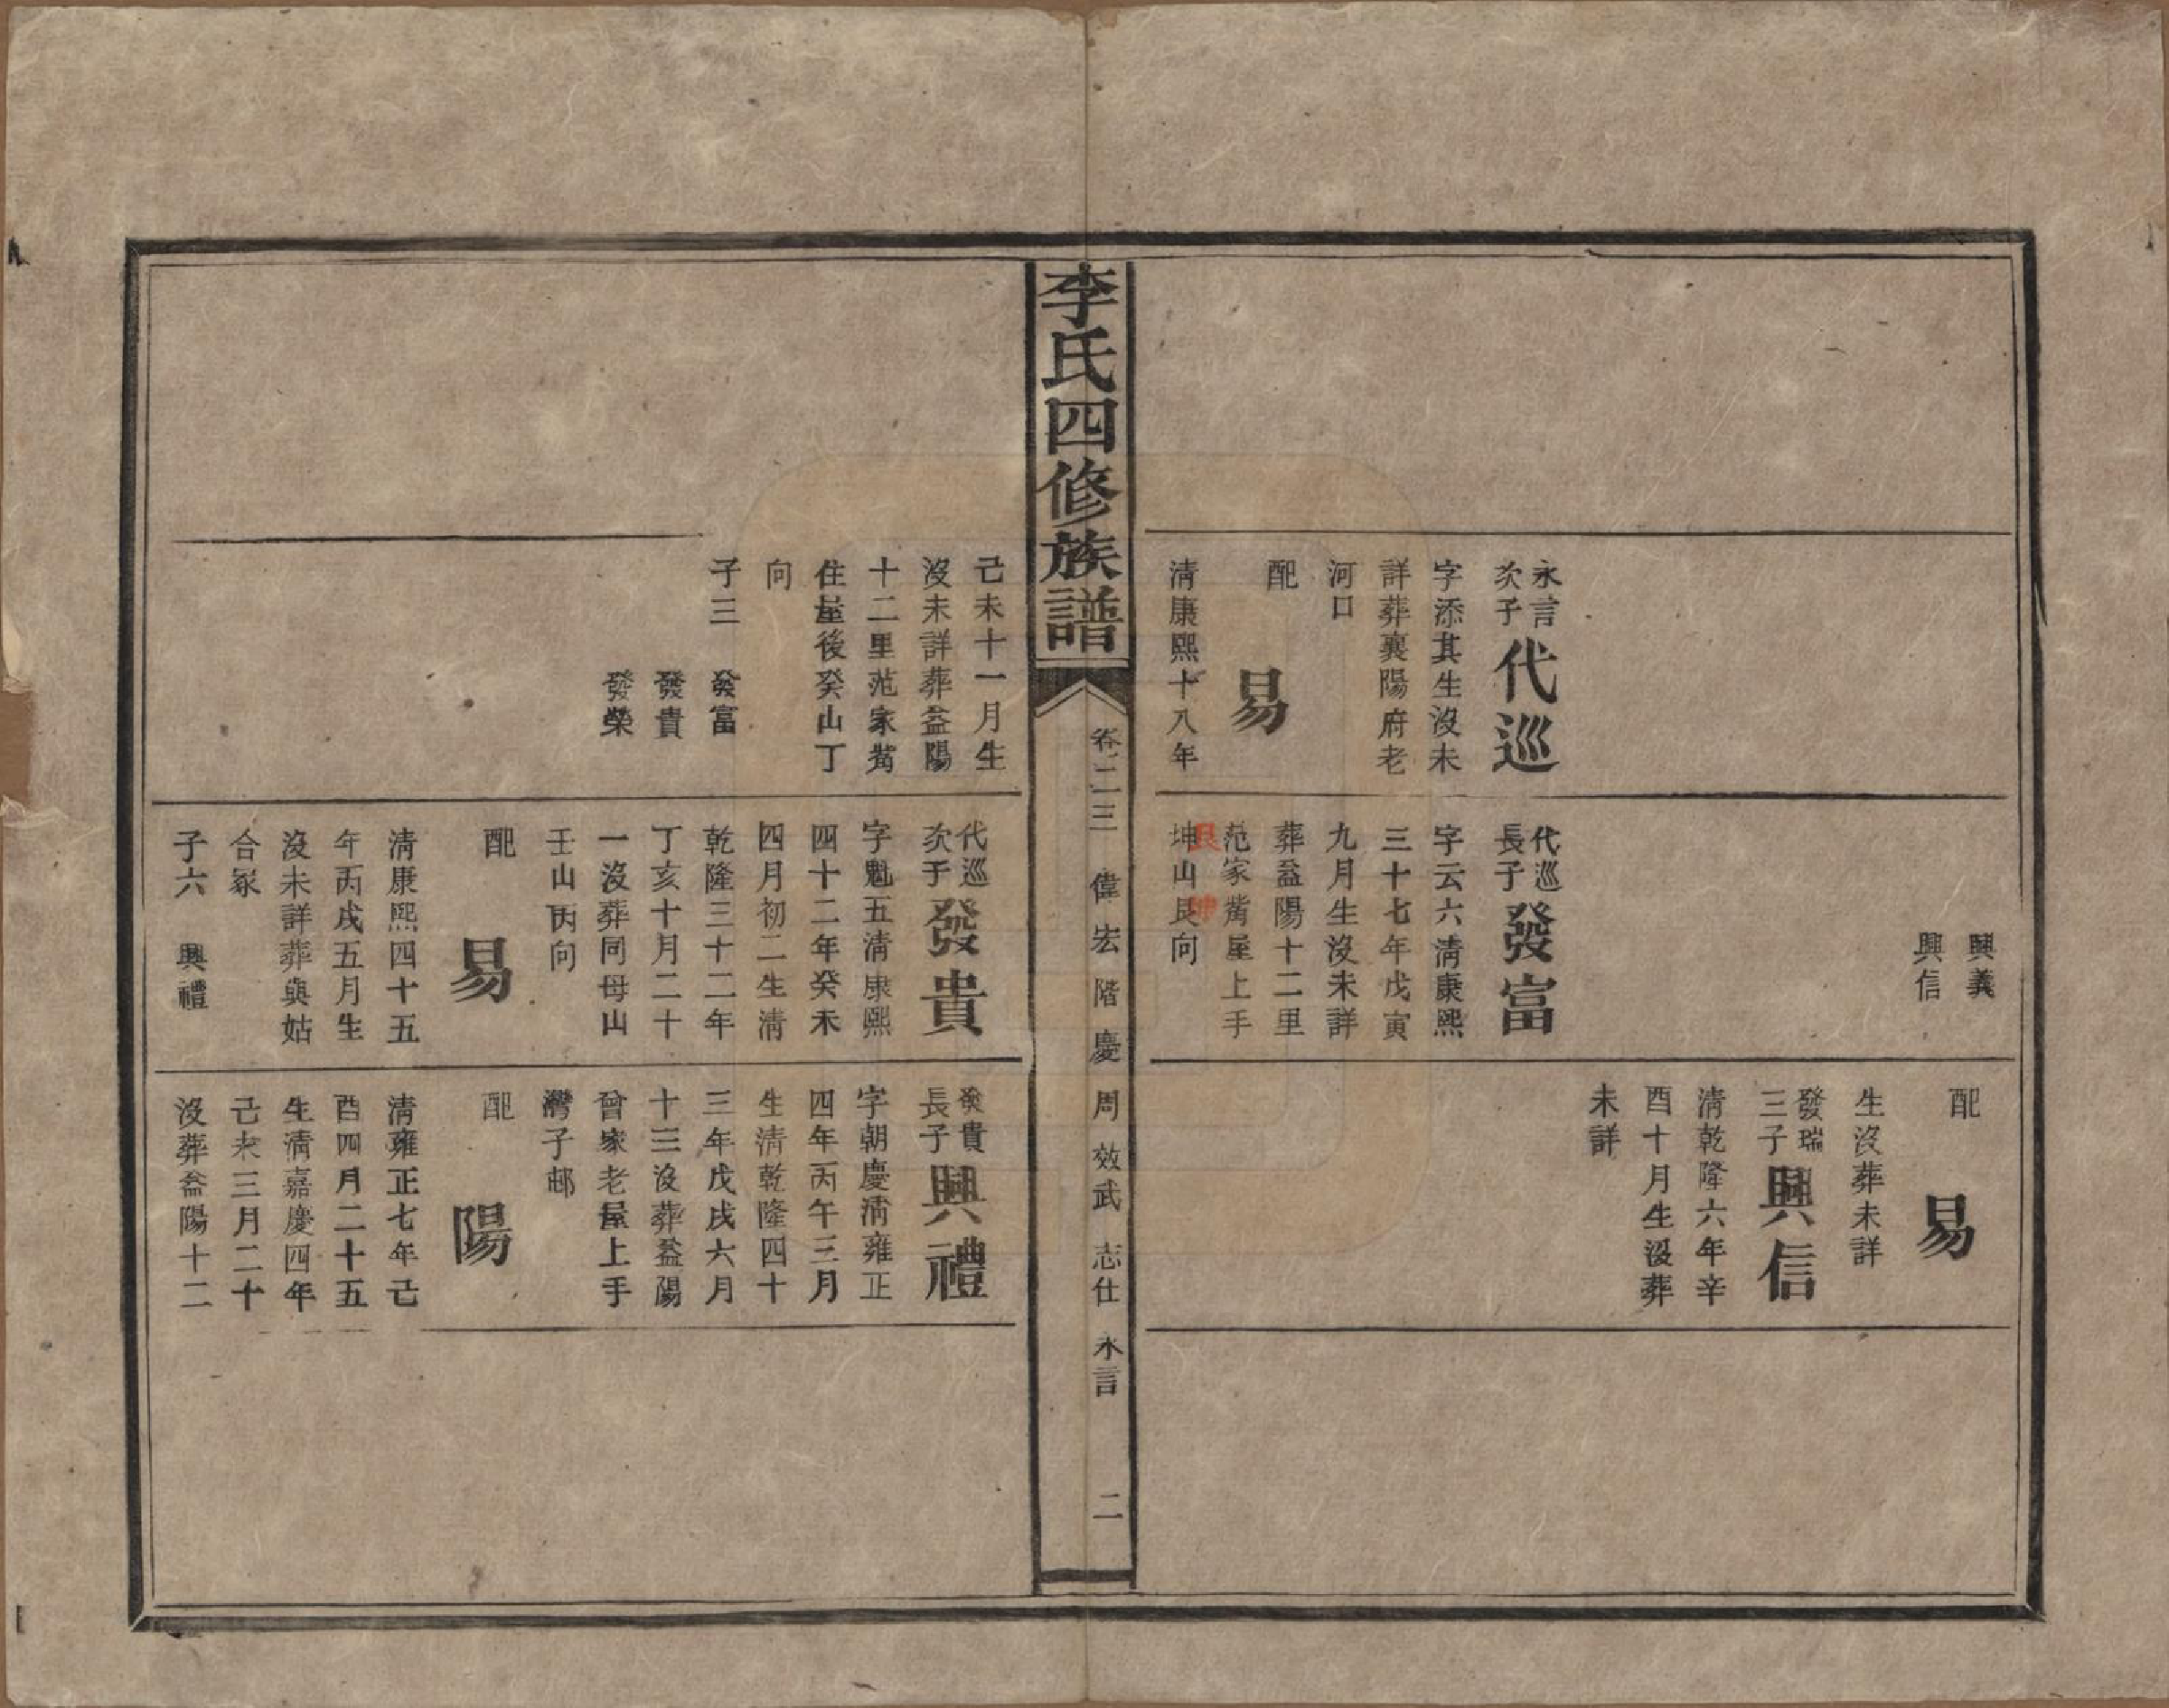 永言
次子
代巡
字添其生沒未
詳葬襄陽府老
河口
配
易
清康熙十八年
興義
興信
代巡
長子
發富
字云六清康熙
三十七年戊寅
九月生沒未詳
葬益陽十二里
范家觜屋上手
坤山艮向
艮 坤
配
易
生沒葬未詳
發瑞
三子
興信
清乾隆六年辛
酉十月生沒葬
未詳
李氏四修族譜
卷二三 偉宏階慶 周效武 志仕 永言 二
己未十一月生
沒未詳葬益陽
十二里范家觜
住屋後癸山丁
向
子三 發富
發貴
發榮
代巡
次子
發貴
字魁五清康熙
四十二年癸未
四月初二生清
乾隆三十二年
丁亥十月二十
一沒葬同母山
壬山丙向
配
易
清康熙四十五
年丙戌五月生
沒未詳葬與姑
合冢
子六 興禮
發貴
長子
興禮
字朝慶清雍正
四年丙午三月
生清乾隆四十
三年戊戌六月
十三沒葬益陽
曾家老屋上手
灣子邨
配
陽
清雍正七年己
酉四月二十五
生清嘉慶四年
己未三月二十
沒葬益陽十二